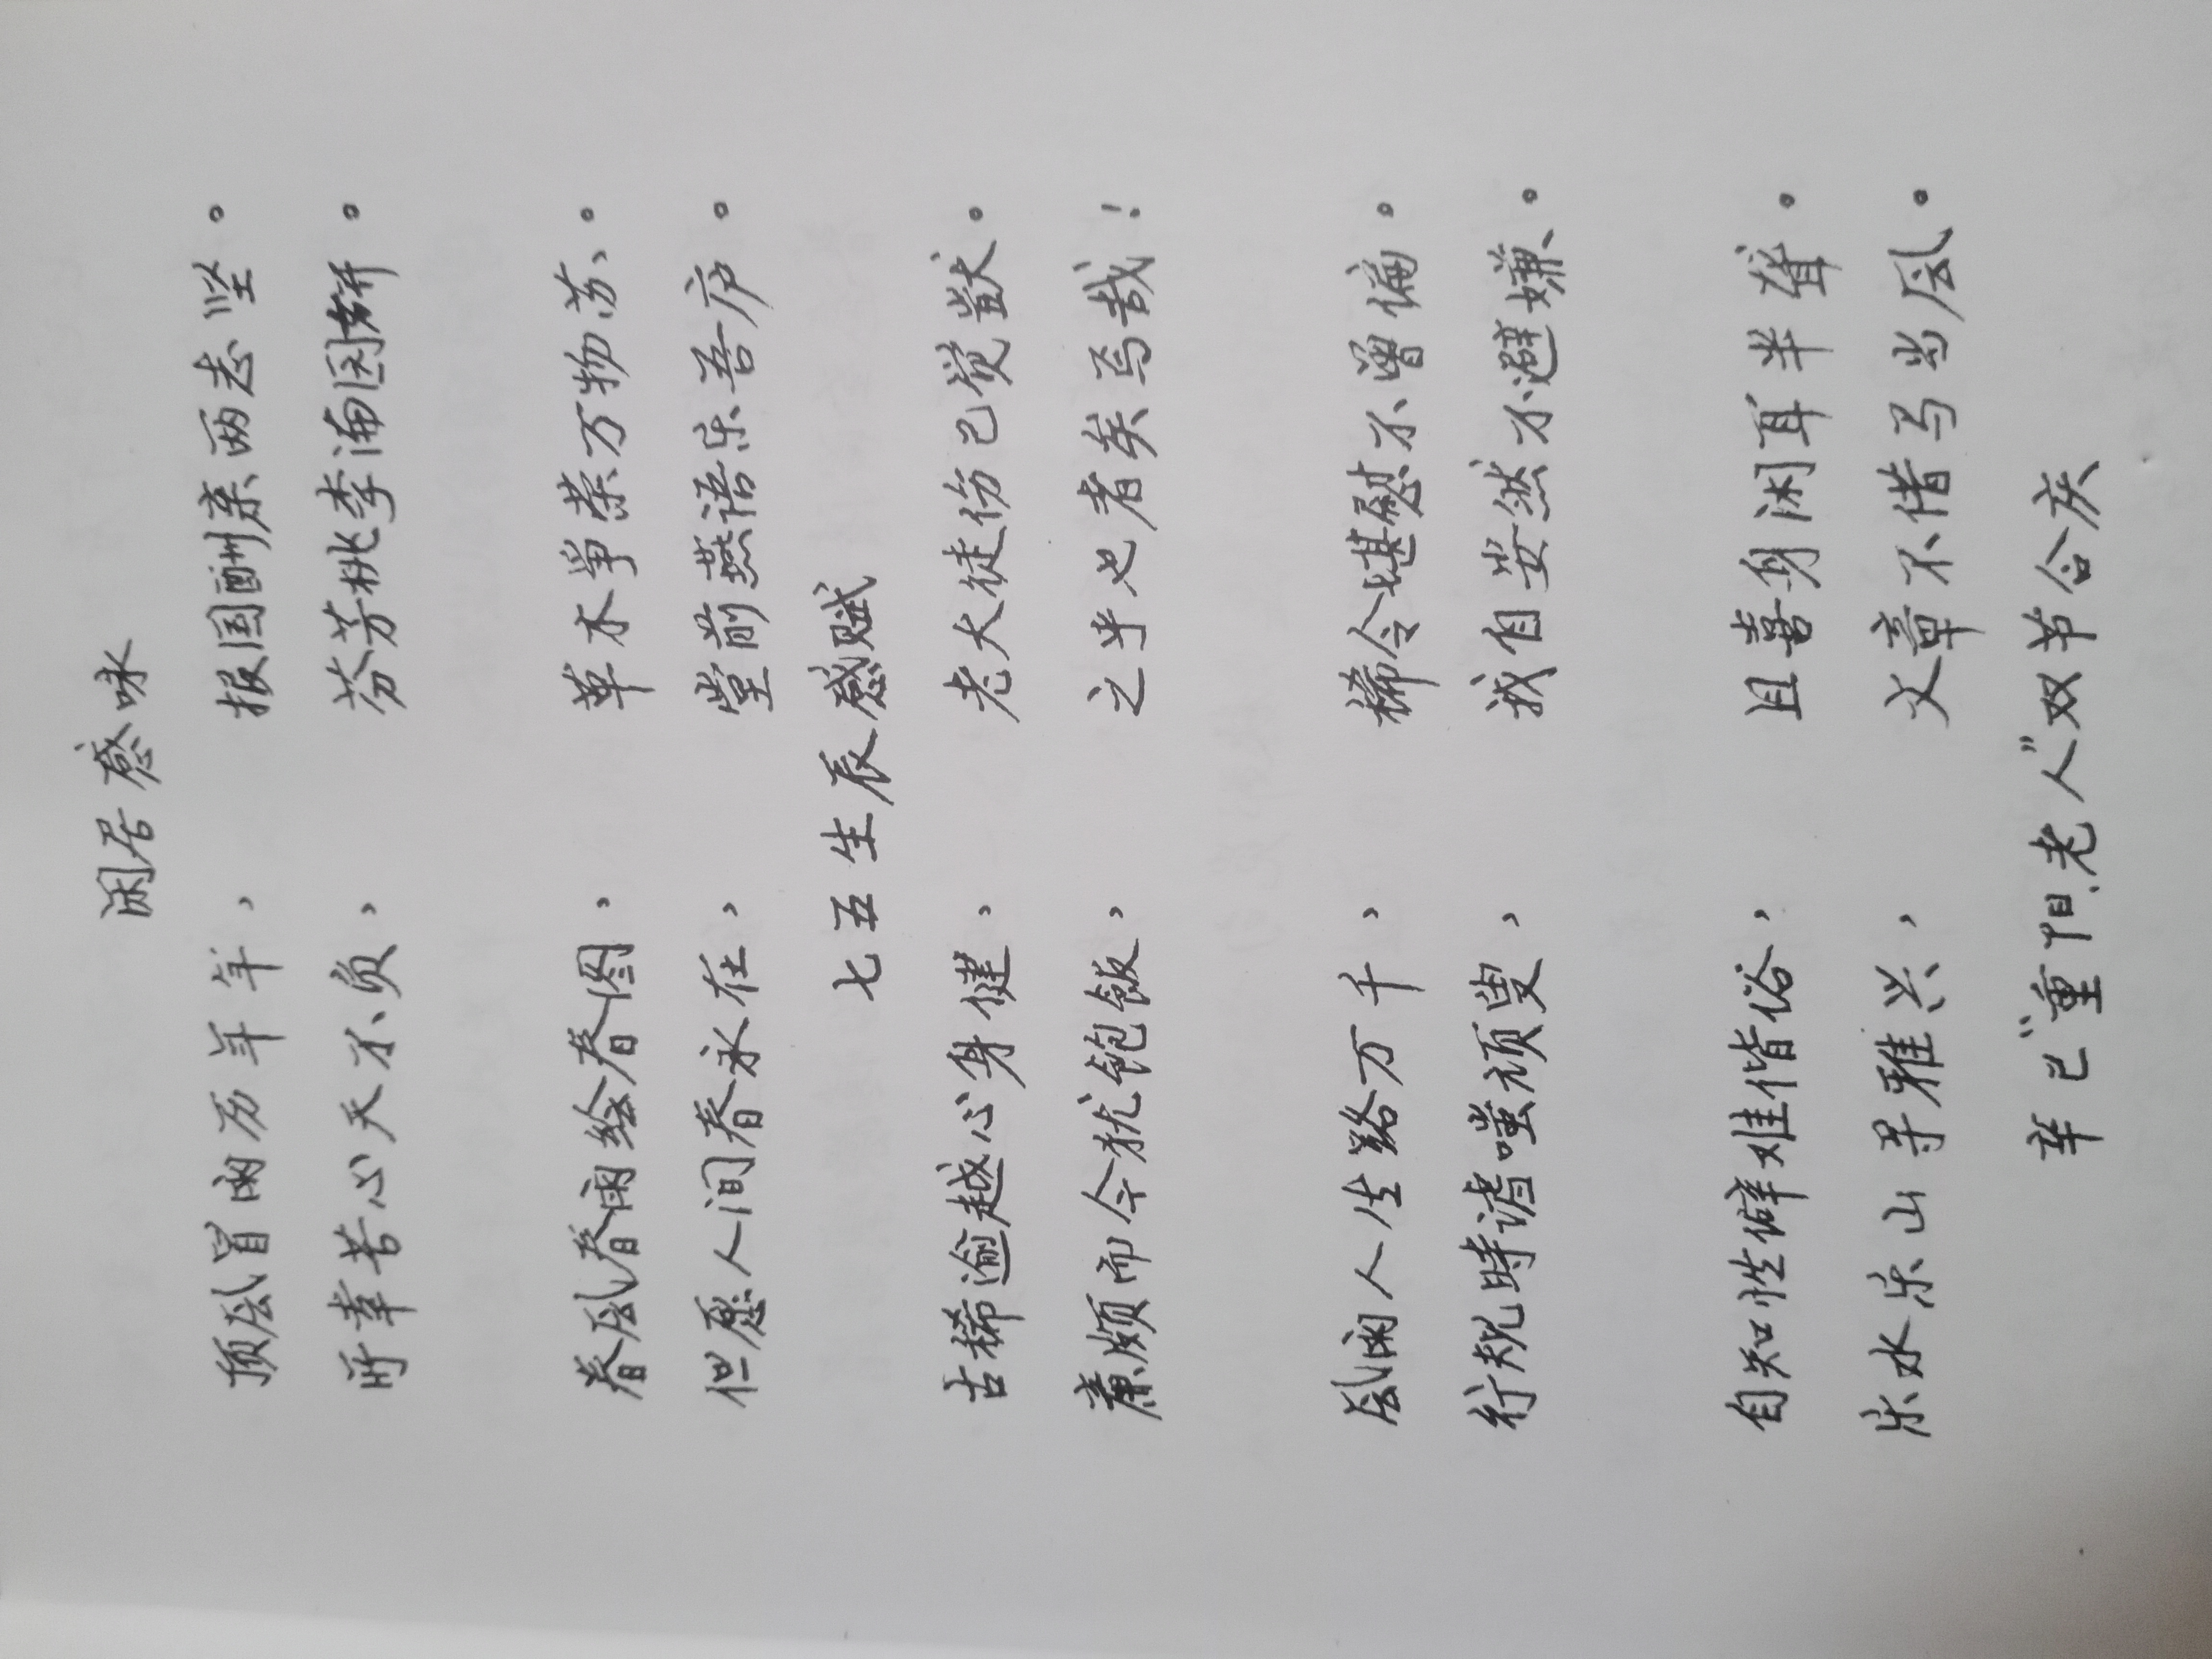 闲居感咏
顶风冒雨历年年，报国酬亲两志坚。
所幸苦心天不负，芬芳桃李满园妍。
春风春雨绘春图，草木争荣万物苏。
但愿人间春永在，堂前燕语乐吾庐。
七五生辰感赋
古稀逾越心身健，老大徒伤已觉
廉颇而今犹饱飯，之乎也者矣焉哉！
风雨人生路万千，稀令堪慰不曾偏。
行规時诸嗤顽叟，我自安然不避嫌。
自知性僻难偕俗，且喜身闲耳半聋。
乐水乐山寻雅兴，文章不借马当风。
辛巳“重阳、老人”双节合庆